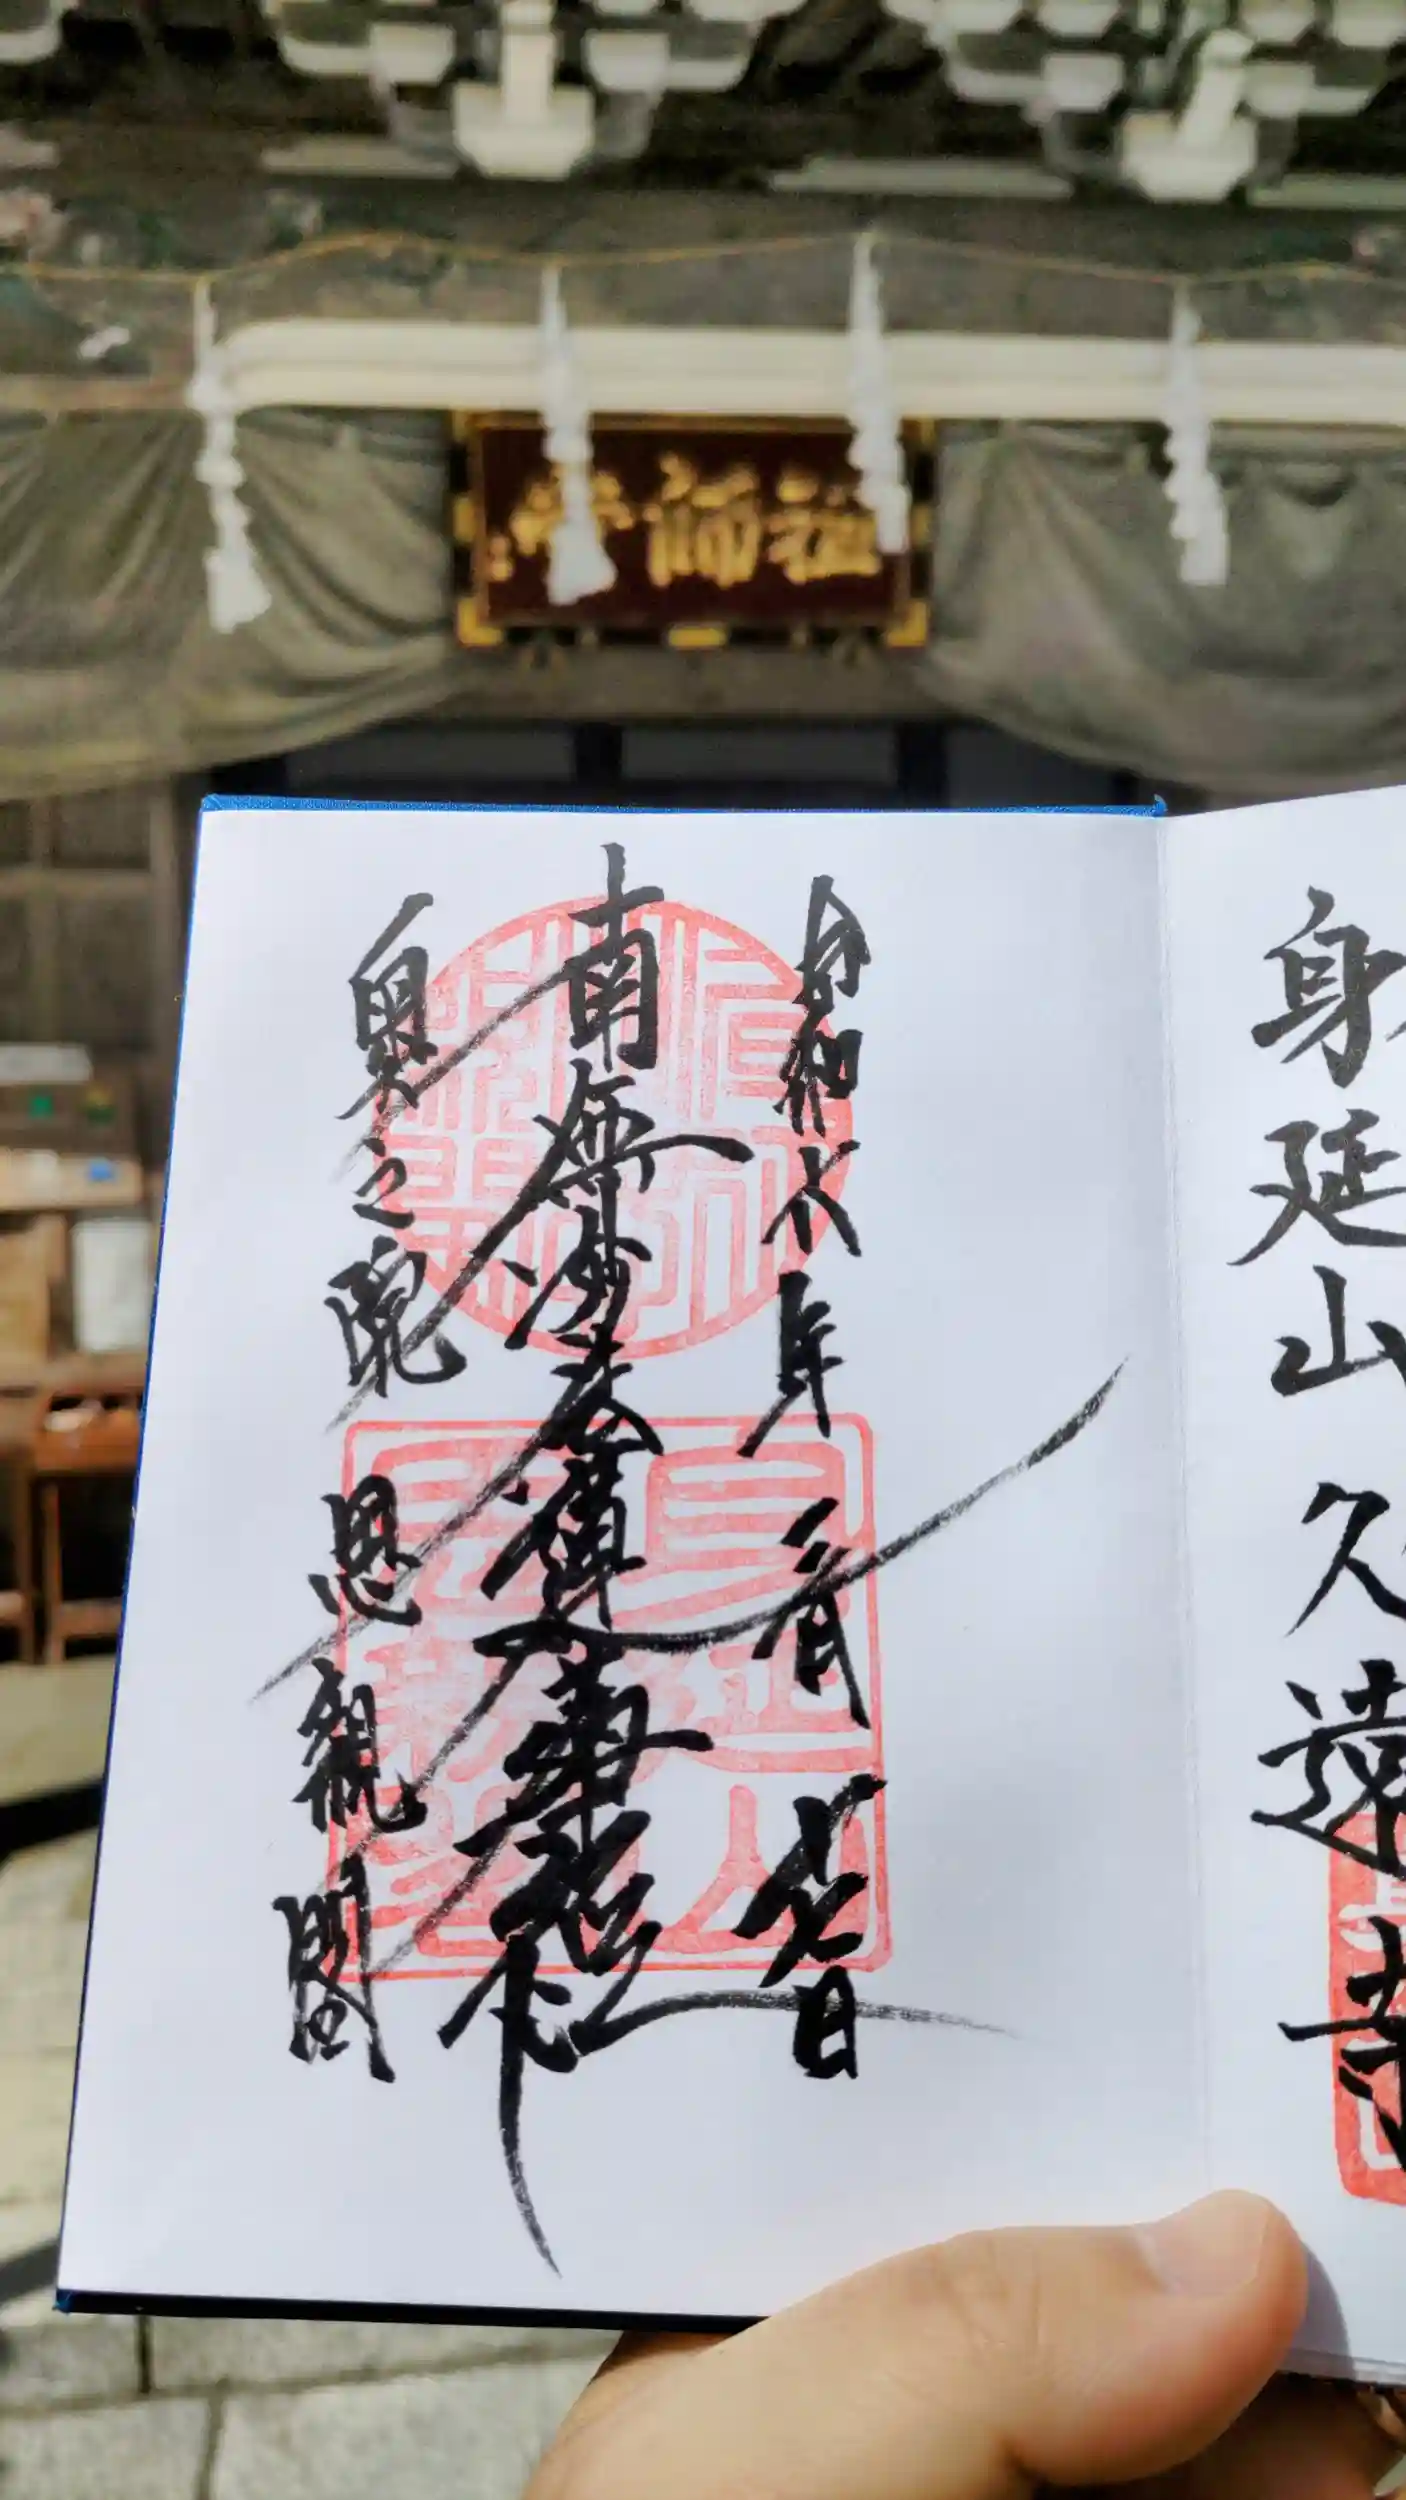 祖師堂
身延山久遠寺
令和六年 月 日
南無妙法蓮華経
奥之院 思親閣
身延山